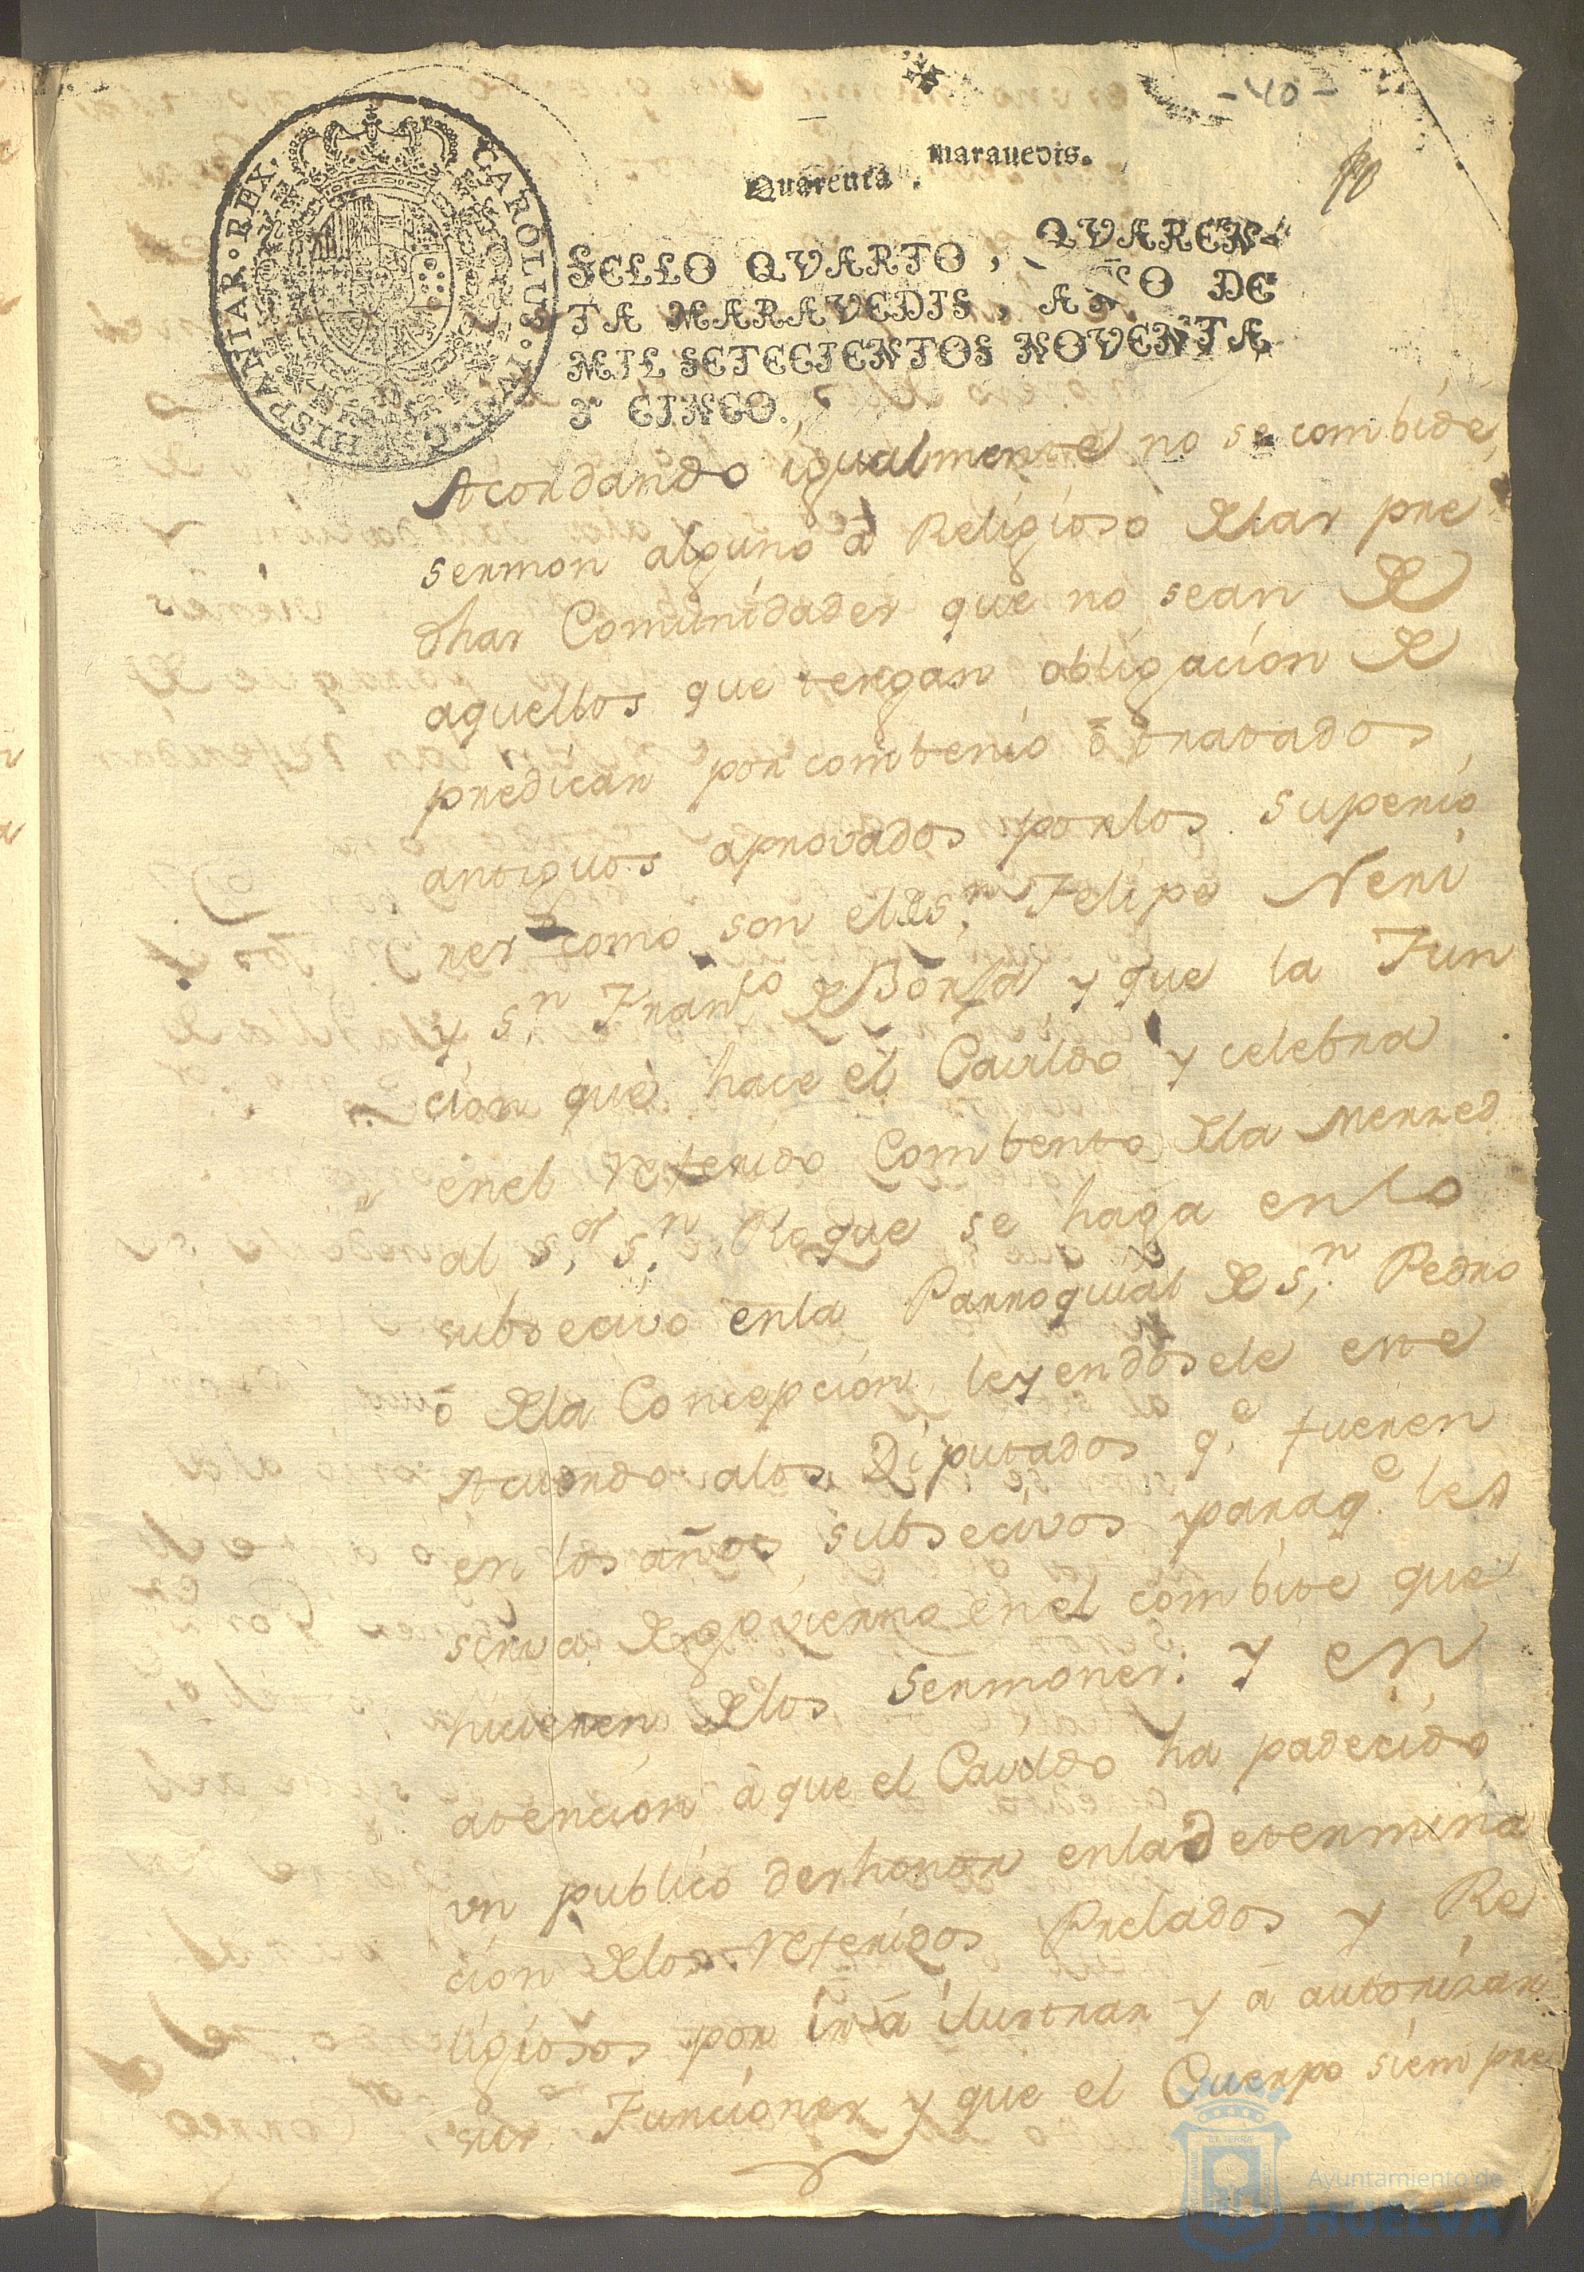 - 40 -
40
Quarenta maravedis.
CAROLUS·IV·D·G· HISPANIAR·REX·
SELLO QVARTO, QVAREN-
TA MARAVEDIS, AÑO DE
MIL SETECIENTOS NOVENTA
Y CINCO.
Acordando igualmente no se combide,
sermon alguno â Religioso delas pre
dhas Comunidades que no sean de
aquellos que tengan obligacion de
predicar por combenio ô tratados
antiguos aprovados porlos superio
res como son el de Sn. Felipe Neri
y Sn. Franco de Borja y que la Fun
cion que hace el Cavildo y celebra
enel referido Combento dela Merced
al Sor. Sn. Roque se haga en lo
subsecivo enla Parroquial de Sn. Pedro
ô dela Concepcion leyendosele este
Acuerdo alos Diputados qe. fueren
en los años subsecivos paraqe. les
sirva de govierno enel combite que
hicieren delos Sermones: Y en
atencion â que el Cavildo ha padecido
un publico deshonor enla determina
cion delos referidos Prelados y Re
ligiosos por ir â ilustrar y â autorizar
sus Funciones y que el Cuerpo siempre
Ayuntamiento de
HUELVA